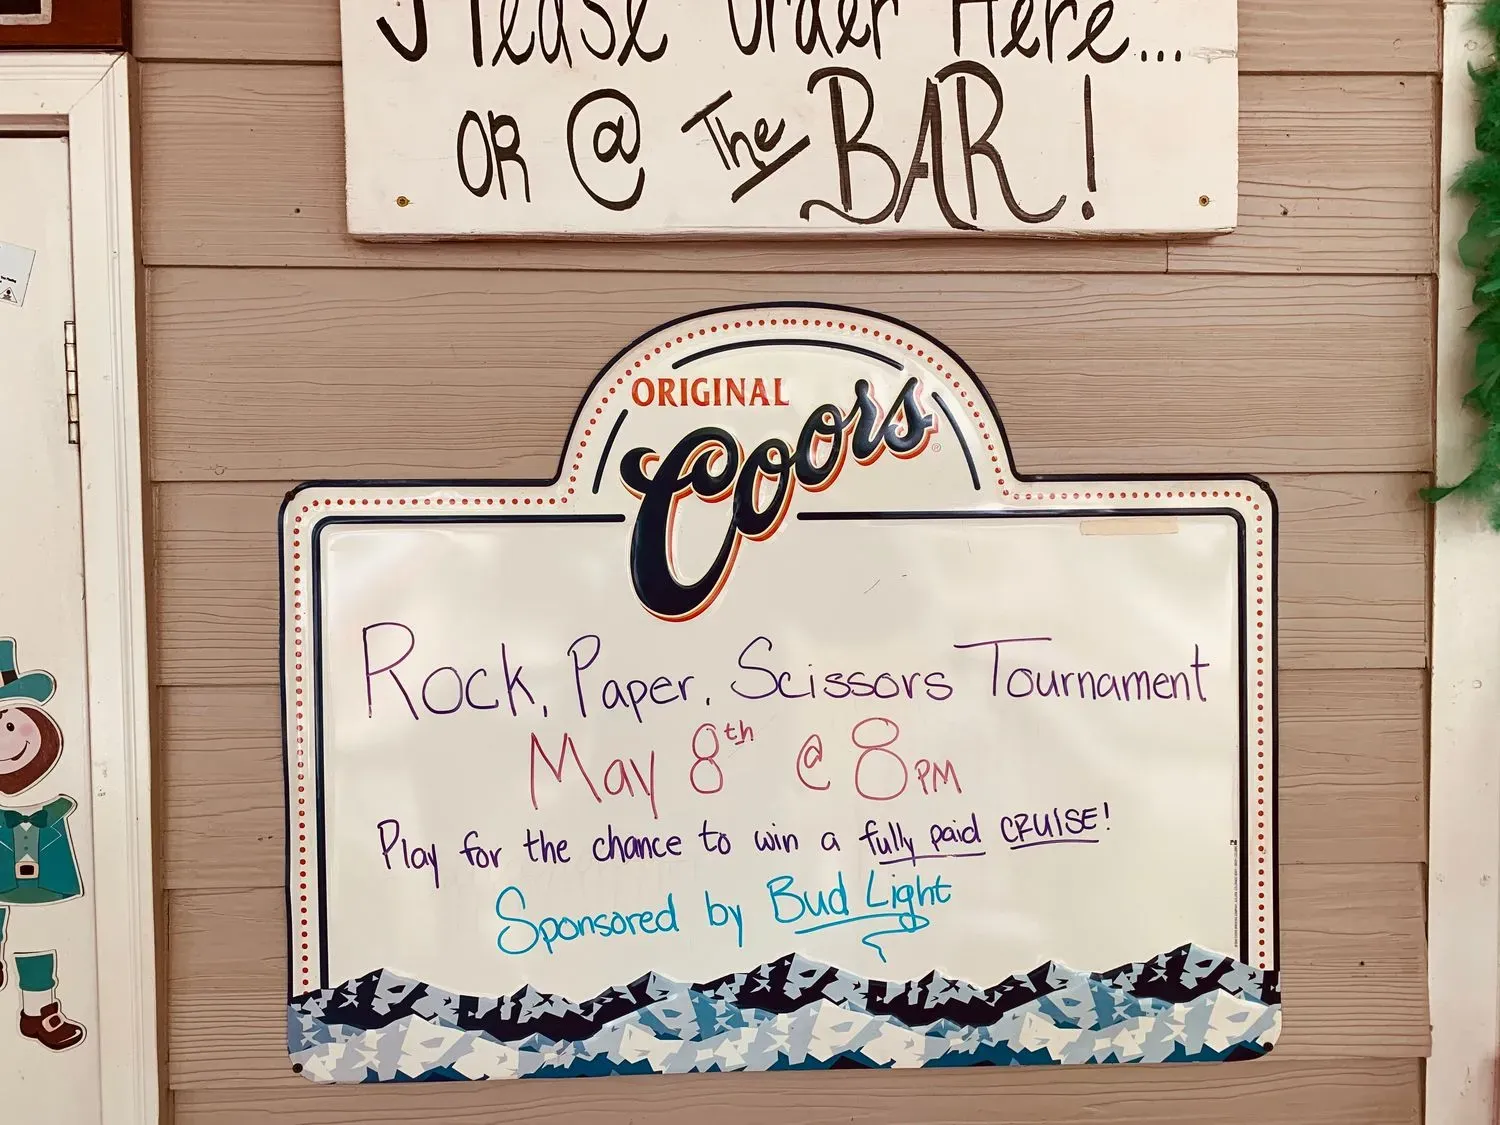 Please Order Here...
OR @ The BAR!
ORIGINAL
Coors
Rock, Paper, Scissors Tournament
May 8th @ 8PM
Play for the chance to win a fully paid CRUISE!
Sponsored by Bud Light